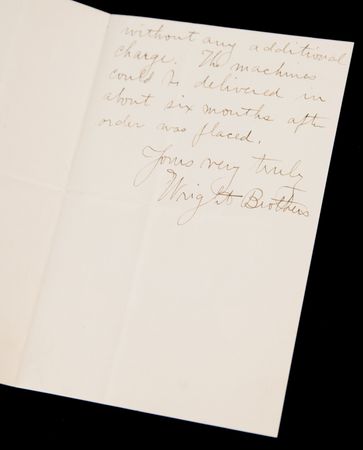 without any additional
charge. The machines
could be delivered in
about six months after
order was placed.
Yours very truly
Wright Brothers